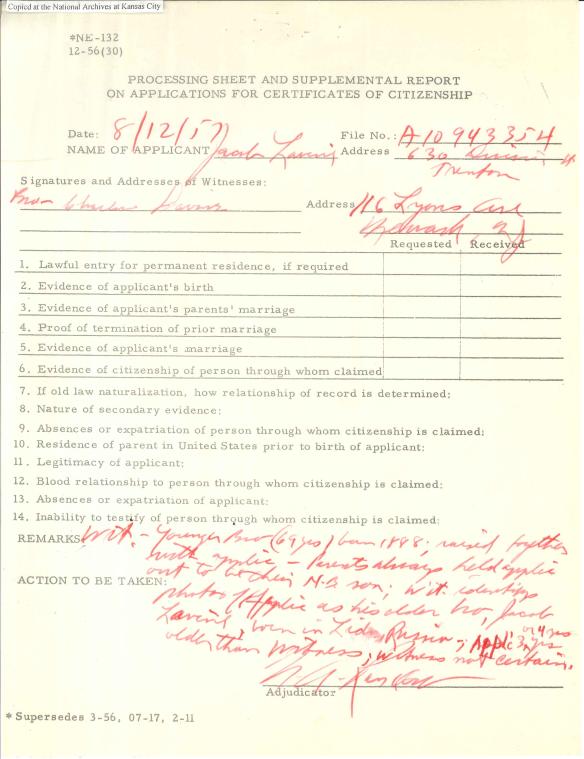 Copied at the National Archives at Kansas City
*NE-132
12-56(30)
PROCESSING SHEET AND SUPPLEMENTAL REPORT
ON APPLICATIONS FOR CERTIFICATES OF CITIZENSHIP
Date: 8/12/57 File No.: A10 943354
NAME OF APPLICANT Jacob Lavine Address 630
Trenton
Signatures and Addresses of Witnesses:
Bro- Charles Address 116 Lyons Ave
Newark, NJ
Requested Received
1. Lawful entry for permanent residence, if required
2. Evidence of applicant's birth
3. Evidence of applicant's parents' marriage
4. Proof of termination of prior marriage
5. Evidence of applicant's marriage
6. Evidence of citizenship of person through whom claimed
7. If old law naturalization, how relationship of record is determined:
8. Nature of secondary evidence:
9. Absences or expatriation of person through whom citizenship is claimed:
10. Residence of parent in United States prior to birth of applicant:
11. Legitimacy of applicant:
12. Blood relationship to person through whom citizenship is claimed:
13. Absences or expatriation of applicant:
14. Inability to testify of person through whom citizenship is claimed:
REMARKS: Wit. - Younger Bro (69 yrs) born 1888; raised together
with applic - Parents always held applic
out to be their N-B son; Wit. identifies
ACTION TO BE TAKEN: photos of Applic as his older bro, Jacob
Lavine, born in Lida, Russia; Applic 3 or 4 yrs
older than witness; witness not certain.
Adjudicator
* Supersedes 3-56, 07-17, 2-11